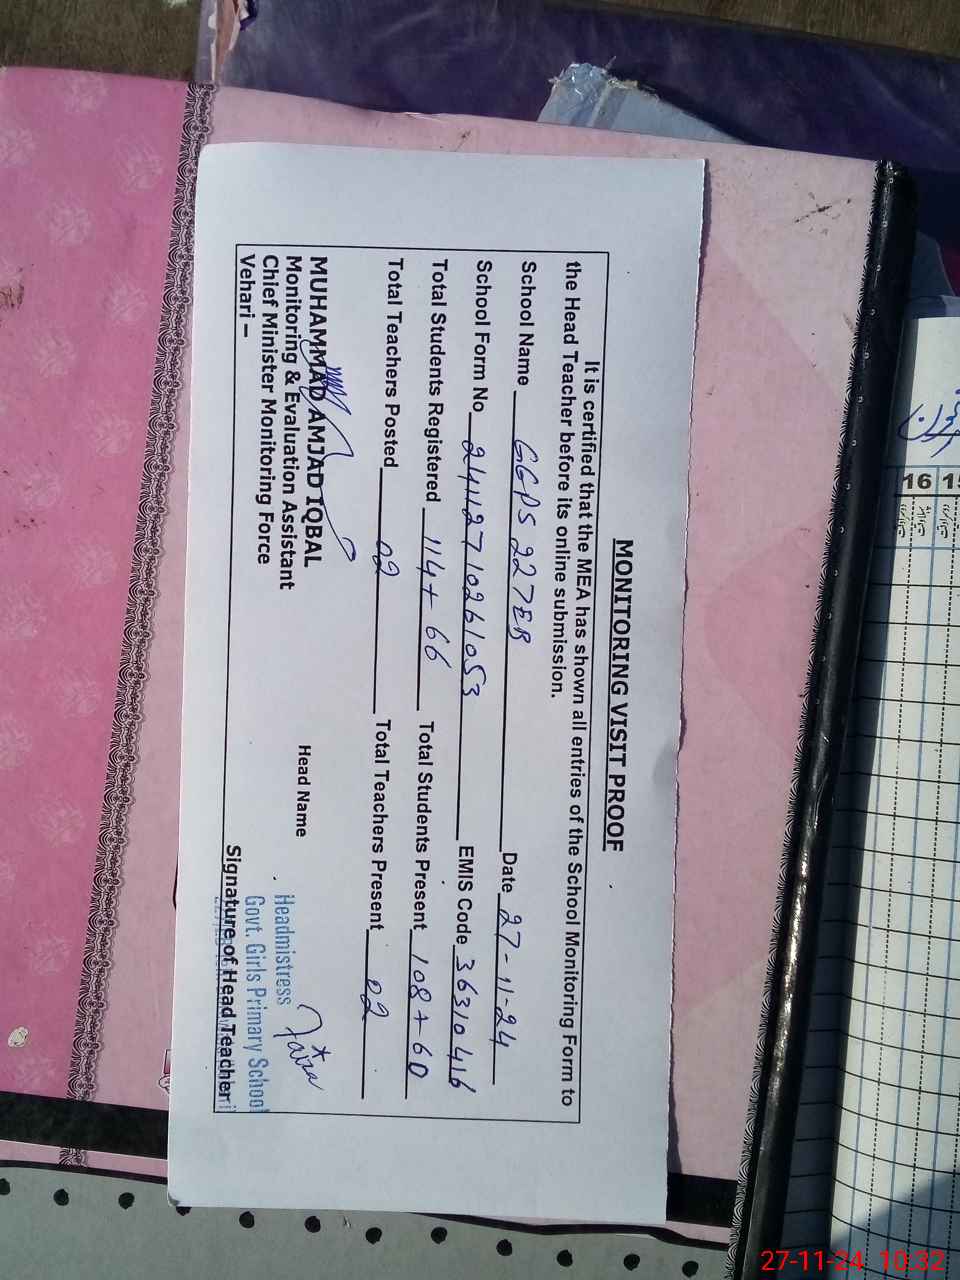 MONITORING VISIT PROOF
It is certified that the MEA has shown all entries of the School Monitoring Form to
the Head Teacher before its online submission.
School Name GGPS 227EB Date 27-11-24
School Form No 24112710261053 EMIS Code 36310416
Total Students Registered 114+66 Total Students Present 108+60
Total Teachers Posted 02 Total Teachers Present 02
MUHAMMAD AMJAD IQBAL
Monitoring & Evaluation Assistant
Chief Minister Monitoring Force
Vehari –
Head Name
Headmistress
Govt. Girls Primary School
Signature of Head Teacher
16 15
27-11-24 10:32